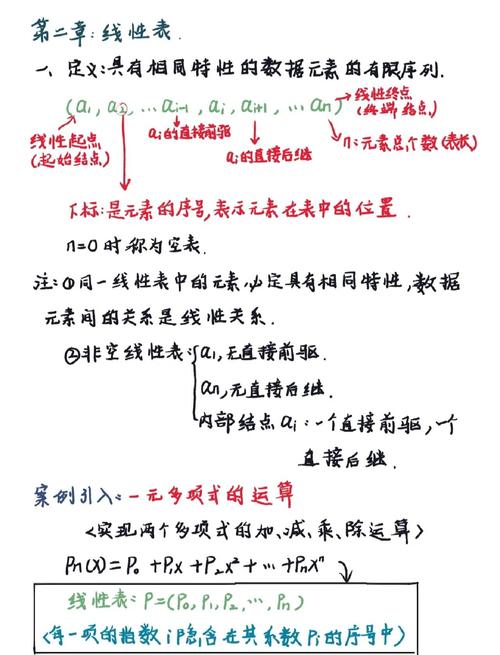 第二章:线性表.
一、定义:具有相同特性的数据元素的有限序列.
(a1, a2, … ai-1, ai, ai+1, … an)
线性终点
(终端结点)
线性起点
(起始结点)
ai的直接前驱
ai的直接后继
n:元素总个数(表长)
下标:是元素的序号,表示元素在表中的位置.
n=0时称为空表.
注:①同一线性表中的元素必定具有相同特性,数据
元素间的关系是线性关系.
②非空线性表:{a1,无直接前驱.
an,无直接后继.
内部结点ai:一个直接前驱,一个
直接后继.
案例引入:一元多项式的运算
<实现两个多项式的加、减、乘、除运算>
Pn(x)=P0+P1x+P2x²+…+Pnxⁿ
线性表:P=(P0,P1,P2,…,Pn)
<每一项的指数i隐含在其系数Pi的序号中>